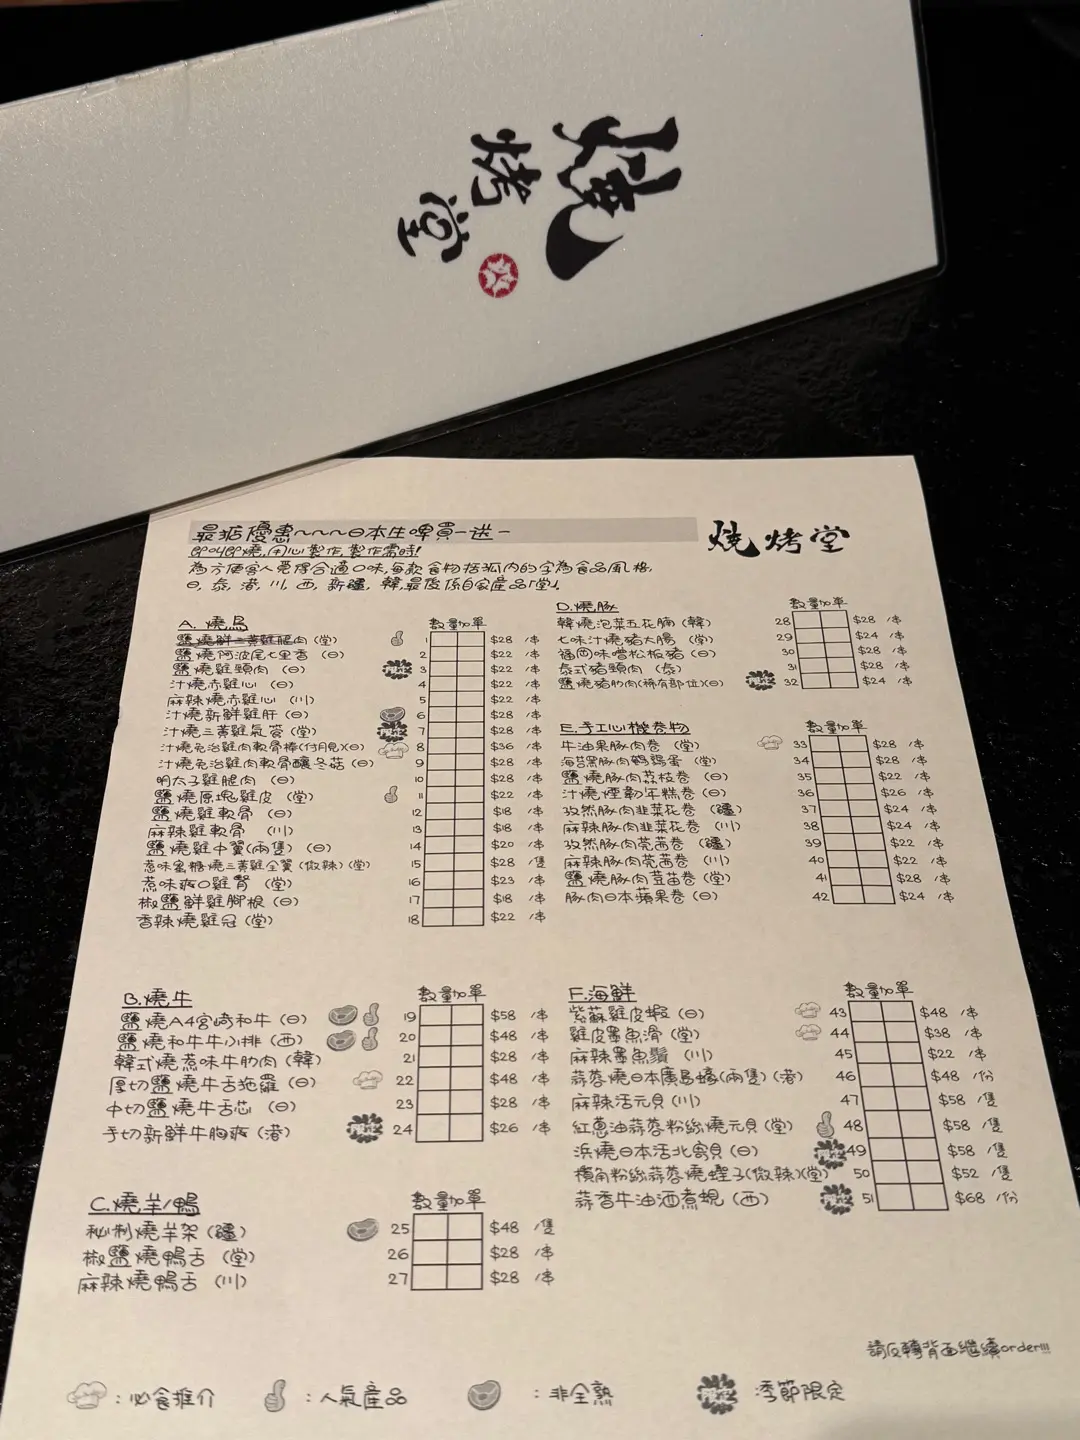 燒烤堂
最抵優惠~~~日本生啤買一送一
燒烤堂
即叫即燒,用心製作,製作需時!
為方便客人覓得合適口味,每款食物括弧內的字為食品風格,
日, 泰, 港, 川, 西, 新疆, 韓,最後係自家產品「堂」.
A. 燒鳥 數量加單
鹽燒鮮三黃雞腿肉(堂) 1 $28 /串
鹽燒阿波尾七里香(日) 2 $22 /串
鹽燒雞頸肉(日) 限定 3 $22 /串
汁燒赤雞心(日) 4 $22 /串
麻辣燒赤雞心(川) 5 $22 /串
汁燒新鮮雞肝(日) 6 $28 /串
汁燒三黃雞氣管(堂) 限定 7 $28 /串
汁燒免治雞肉軟骨棒(付月見)(日) 8 $36 /串
汁燒免治雞肉軟骨釀冬菇(日) 9 $28 /串
明太子雞腿肉(日) 10 $28 /串
鹽燒原塊雞皮(堂) 11 $22 /串
鹽燒雞軟骨(日) 12 $18 /串
麻辣雞軟骨(川) 13 $18 /串
鹽燒雞中翼(兩隻)(日) 14 $20 /串
惹味蜜糖燒三黃雞全翼(微辣)(堂) 15 $28 /隻
惹味爽口雞腎(堂) 16 $23 /串
椒鹽鮮雞腳根(日) 17 $18 /串
香辣燒雞冠(堂) 18 $22 /串
B.燒牛 數量加單
鹽燒A4宮崎和牛(日) 19 $58 /串
鹽燒和牛牛小排(西) 20 $48 /串
韓式燒惹味牛肋肉(韓) 21 $28 /串
厚切鹽燒牛舌拖羅(日) 22 $48 /串
中切鹽燒牛舌芯(日) 23 $28 /串
手切新鮮牛胸爽(港) 限定 24 $26 /串
C.燒羊/鴨 數量加單
秘制燒羊架(疆) 25 $48 /隻
椒鹽燒鴨舌(堂) 26 $28 /串
麻辣燒鴨舌(川) 27 $28 /串
D.燒豚 數量加單
韓燒泡菜五花腩(韓) 28 $28 /串
七味汁燒豬大腸(堂) 29 $24 /串
福岡味噌松板豬(日) 30 $28 /串
泰式豬頸肉(泰) 31 $28 /串
鹽燒豬肋肉(稀有部位)(日) 限定 32 $24 /串
E.手工心機卷物 數量加單
牛油果豚肉卷(堂) 33 $28 /串
海苔黑豚肉鵪鶉蛋(堂) 34 $28 /串
鹽燒豚肉荔枝卷(日) 35 $22 /串
汁燒煙韌年糕卷(日) 36 $26 /串
孜然豚肉韭菜花卷(疆) 37 $24 /串
麻辣豚肉韭菜花卷(川) 38 $24 /串
孜然豚肉莞茜卷(疆) 39 $22 /串
麻辣豚肉莞茜卷(川) 40 $22 /串
鹽燒豚肉荳苗卷(堂) 41 $28 /串
豚肉日本蘋果卷(日) 42 $24 /串
F.海鮮 數量加單
紫蘇雞皮蝦(日) 43 $48 /串
雞皮墨魚滑(堂) 44 $38 /串
麻辣墨魚鬚(川) 45 $22 /串
蒜蓉燒日本廣島蠔(兩隻)(港) 46 $48 /份
麻辣活元貝(川) 47 $58 /隻
紅蔥油蒜蓉粉絲燒元貝(堂) 48 $58 /隻
浜燒日本活北寄貝(日) 限定 49 $58 /隻
欖角粉絲蒜蓉燒蟶子(微辣)(堂) 50 $52 /隻
蒜香牛油酒煮蜆(西) 限定 51 $68 /份
請反轉背面繼續order!!!
:必食推介 :人氣產品 :非全熟 限定 季節限定